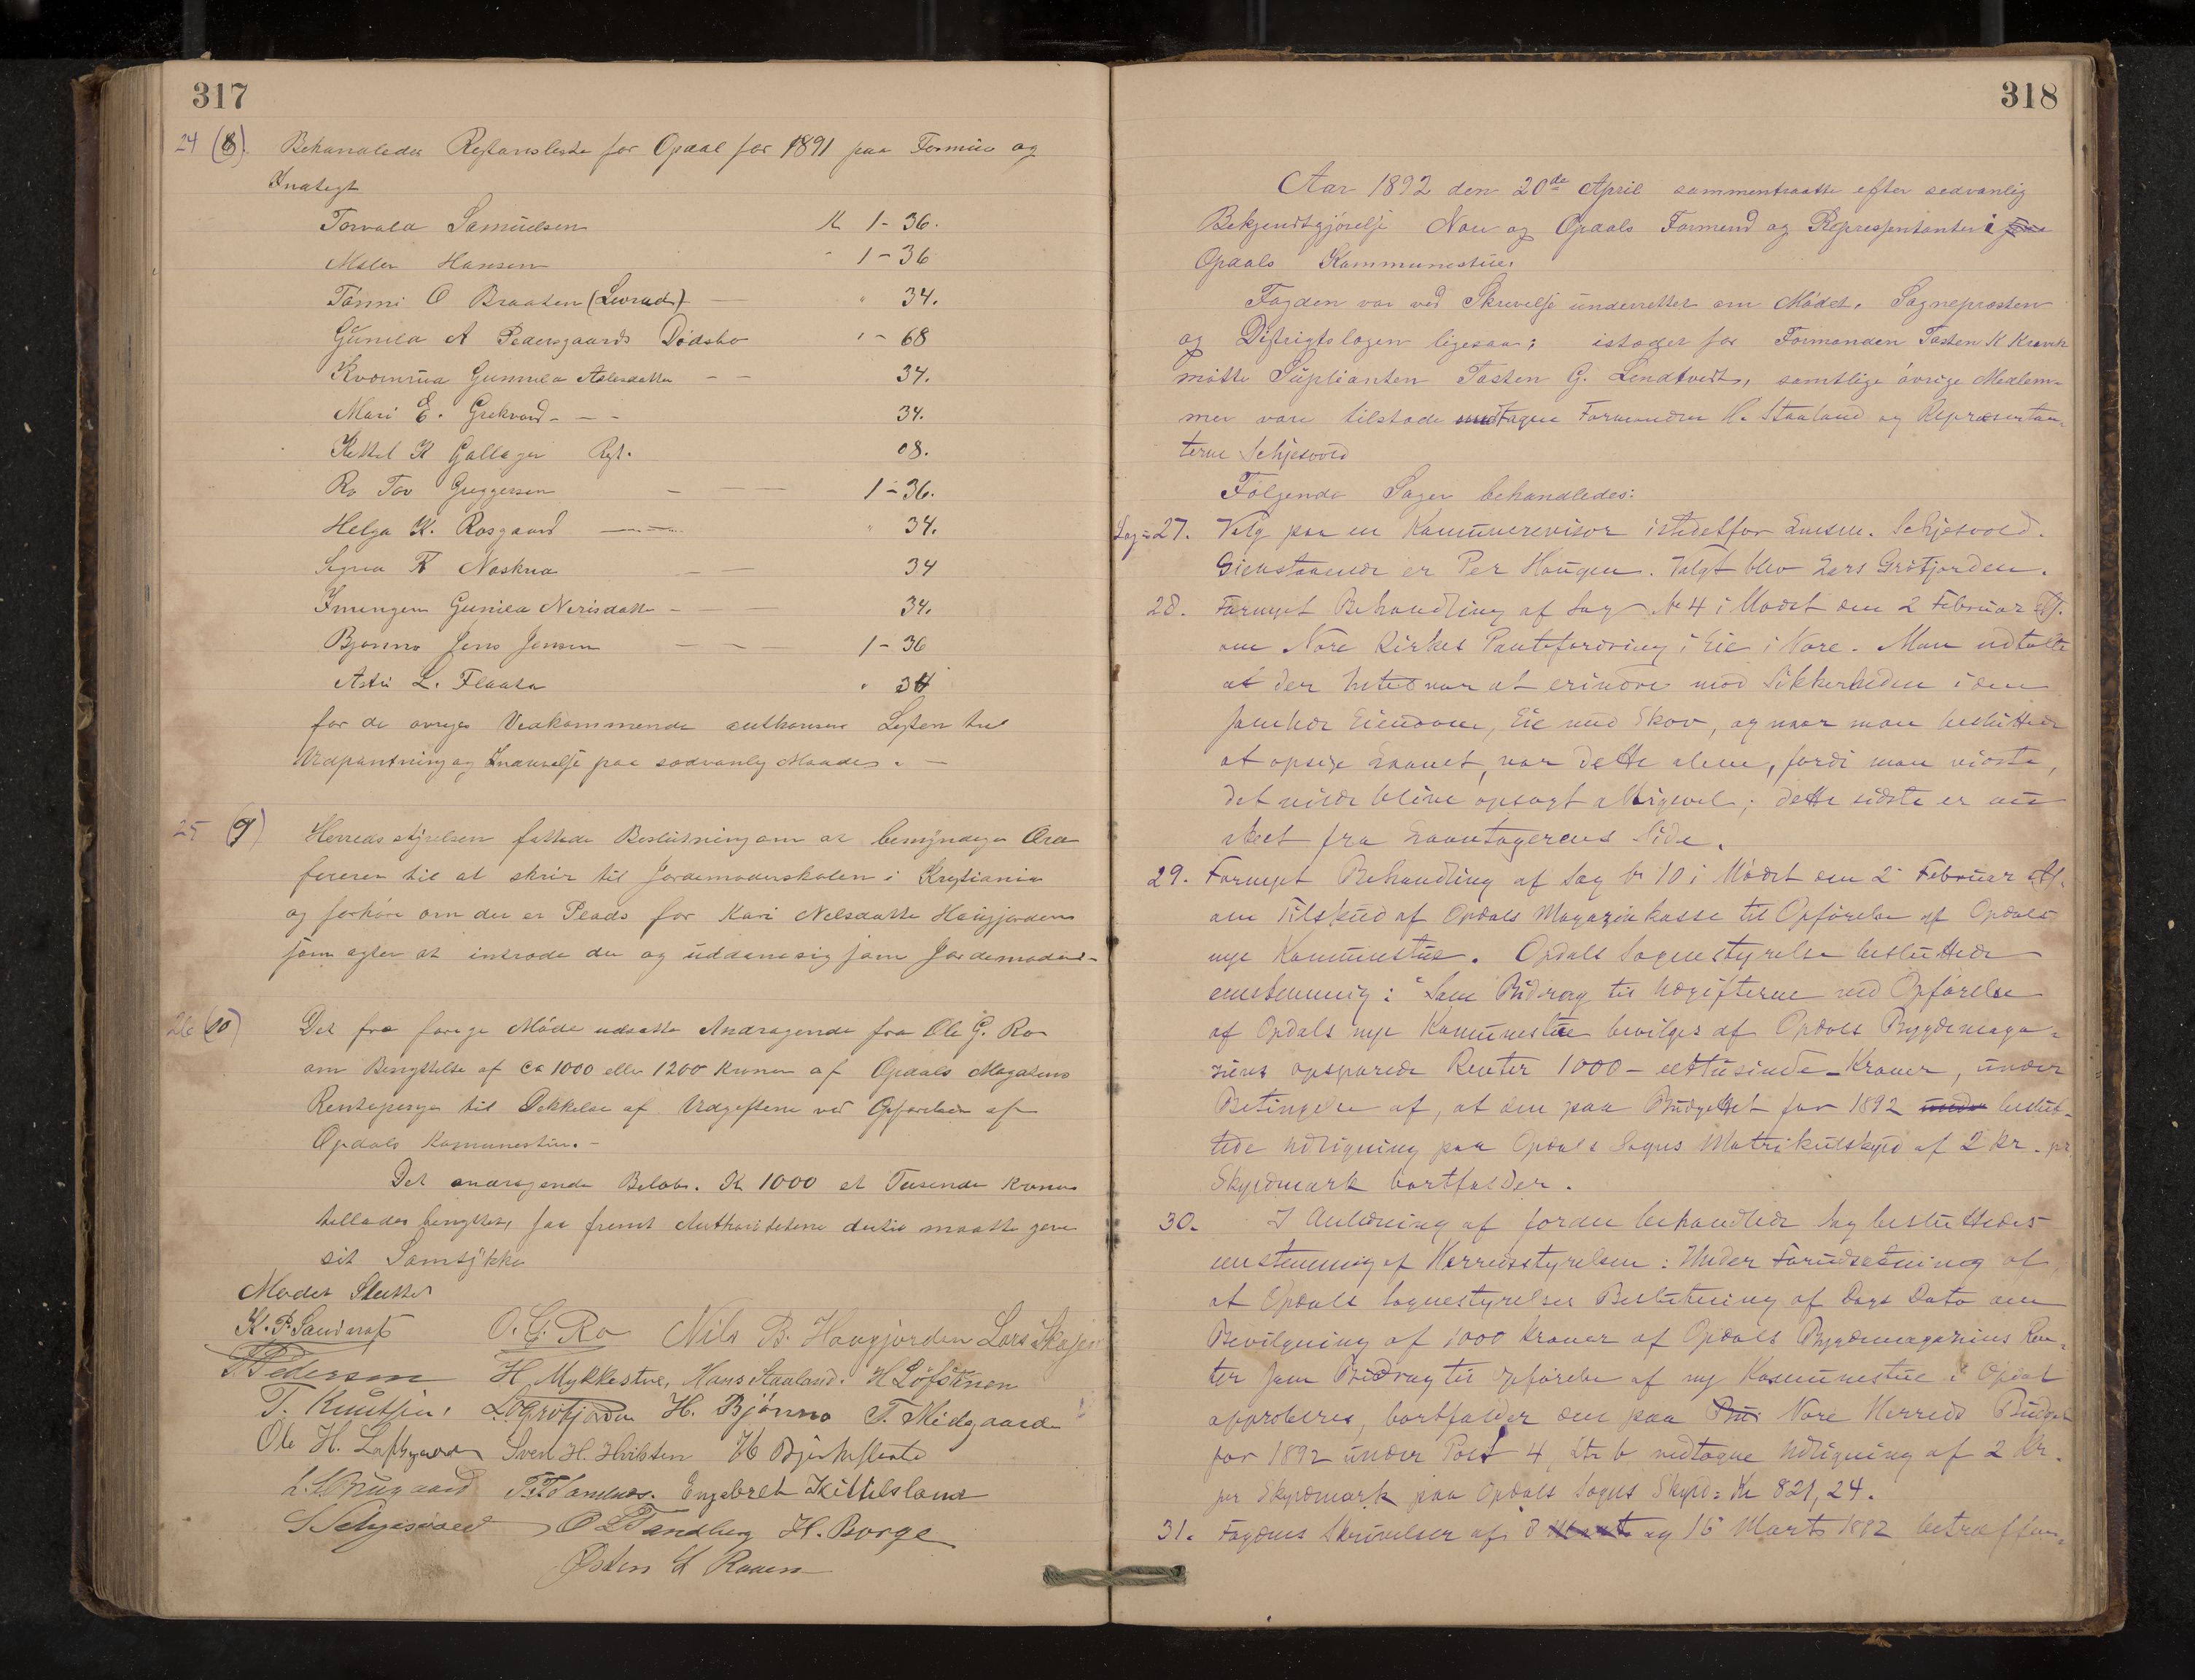 317
24 (8). Behandledes Restanseliste for Opdal for 1891 paa Formue og
Indtægt
Torvald Samuelsen K 1-36.
Maler Hansen " 1-36
Tönni O Braaten (Livrud) — " 34.
Gunild A Pedersgaards Dödsbo " - 68
Kvomma Gunnild Aslesdatter - - 34.
Mari E. Grekvard - - - 34.
Kittil K Gallager Rest. 08.
Ro Tov Greggersen - — — 1-36.
Helga K. Rosgaard — — " 34.
Signa K Naskna - — 34
Imingen Gunild Nerisdatter - — — 34.
Bjönno Jens Jensen — - — 1-36
Astri L. Flaata " 34
for de övrige Vedkommende outhoriseres Listen til
Udpantning og Inddrivelse paa sædvanlig Maade. —
25 (9) Herredsstyrelsen fattede Beslutning om at bemyndige Ord
föreren til at skrive til Jordemoderskolen i Kristiania
og forhöre om der er Plads for Kari Nilsdatter Haugjorden
som agter at indtræde der og uddanne sig som Jordemoder -
26 (10) Det fra forrige Möde udsatte Andragende fra Ole G. Ro
om Benyttelse af Ca 1000 eller 1200 kroner af Opdals Magasins
Rentepenge til Dekkelse af Udgifterne ved Opförelsen af
Opdals Kommunestue. -
Det andragende Belöb. Kr 1000 et Tusende kroner
tillades benyttet, saa fremt Authoritetene dertil maatte give
sit Samtykke
Mödet Sluttet
K. P. Sandnæs O. G. Ro Nils B. Haugjorden Lars Skajen
T Pedersen H. Mykkestue, Hans Staaland. H Löfsteuen
T. Knutsen, L O Gröfjorden H. Bjönno T. Midgaarden
Ole H. Loftsgaard Sven H. Hvilsten H Bjerkeflaata
L. L. Brugaard T. T. Sandnæs. Engebret Kittilsland
S Schjesvold O L Tandberg H. Borge
Østen H Raaen
318
Aar 1892 den 20de April sammentraatte efter sedvanlig
Bekjendtgjörelse Nore og Opdals Formend og Repressentanter i
Opdals Kommunestue.
Fogden var ved Skrivelse underrettet om Mödet, Sogneprosten
og Distrigtslægen ligesaa; istæden for Formanden Tosten K Kravik
mötte Suplianten Tosten G. Lendtvedt, samtlige övrige Medlem-
mer vare tilstede undtagen Formanden H. Staaland og Repræsentan-
terne Schjesvold
Fölgende Sager behandledes:
Sag: 27. Valg paa en Kommunerevisor istedetfor Lensm. Schjesvold.
Gjenstaaende er Per Haugen. Valgt blev Lars Gröfjorden.
28. Fornyet Behandling af Sag No 4 i Mödet den 2 Februar
om Nore Kirkes Pantefordring i Eie i Nore. Man udtalte
at der Intet var at erindre mod Sikkerheden i den
samlede Eiendom, Eie med Skov, og naar man besluttede
at opsige Laanet, var dette alene, fordi man vidste,
det vilde blive opsagt alligevel; dette sidste er nu
skeet fra Laantagerens Side.
29. Fornyet Behandling af Sag No 10 i Mödet den 2 Februar
om Tilskud af Opdals Magazinkasse til Opförelse af Opdals
nye Kommunestue. Opdals Sognestyrelse besluttede
enstemmig: "Som Bidrag til Udgifterne ved Opförelse
af Opdals nye Kommunestue bevilges af Opdals Bygdemaga-
zins opsparede Renter 1000 - ettusinde - Kroner, under
Betingelse af, at den paa Budgettet for 1892 beslut-
tede Udligning paa Opdals Sogns Matrikulskyld af 2 Kr. pr
Skyldmark bortfalder.
30. I Anledning af foran behandlede Sag besluttedes
enstemmig af Herredsstyrelsen: Under Forudsætning af,
at Opdals Sognestyrelses Beslutning af Dags Dato om
Bevilgning af 1000 Kroner af Opdals Bygdemagazins Ren-
ter som Bidrag til Opförelse af ny Kommunestue i Opdal
approberes, bortfalder den paa Nore Herreds Budget
for 1892 under Post 4, Litr b vedtagne Udligning af 2 Kr.
pr Skyldmark paa Opdals Sogns Skyld: Kr 821,24.
31. Fogdens Skrivelser af 8 og 16 Marts 1892 betræffen-